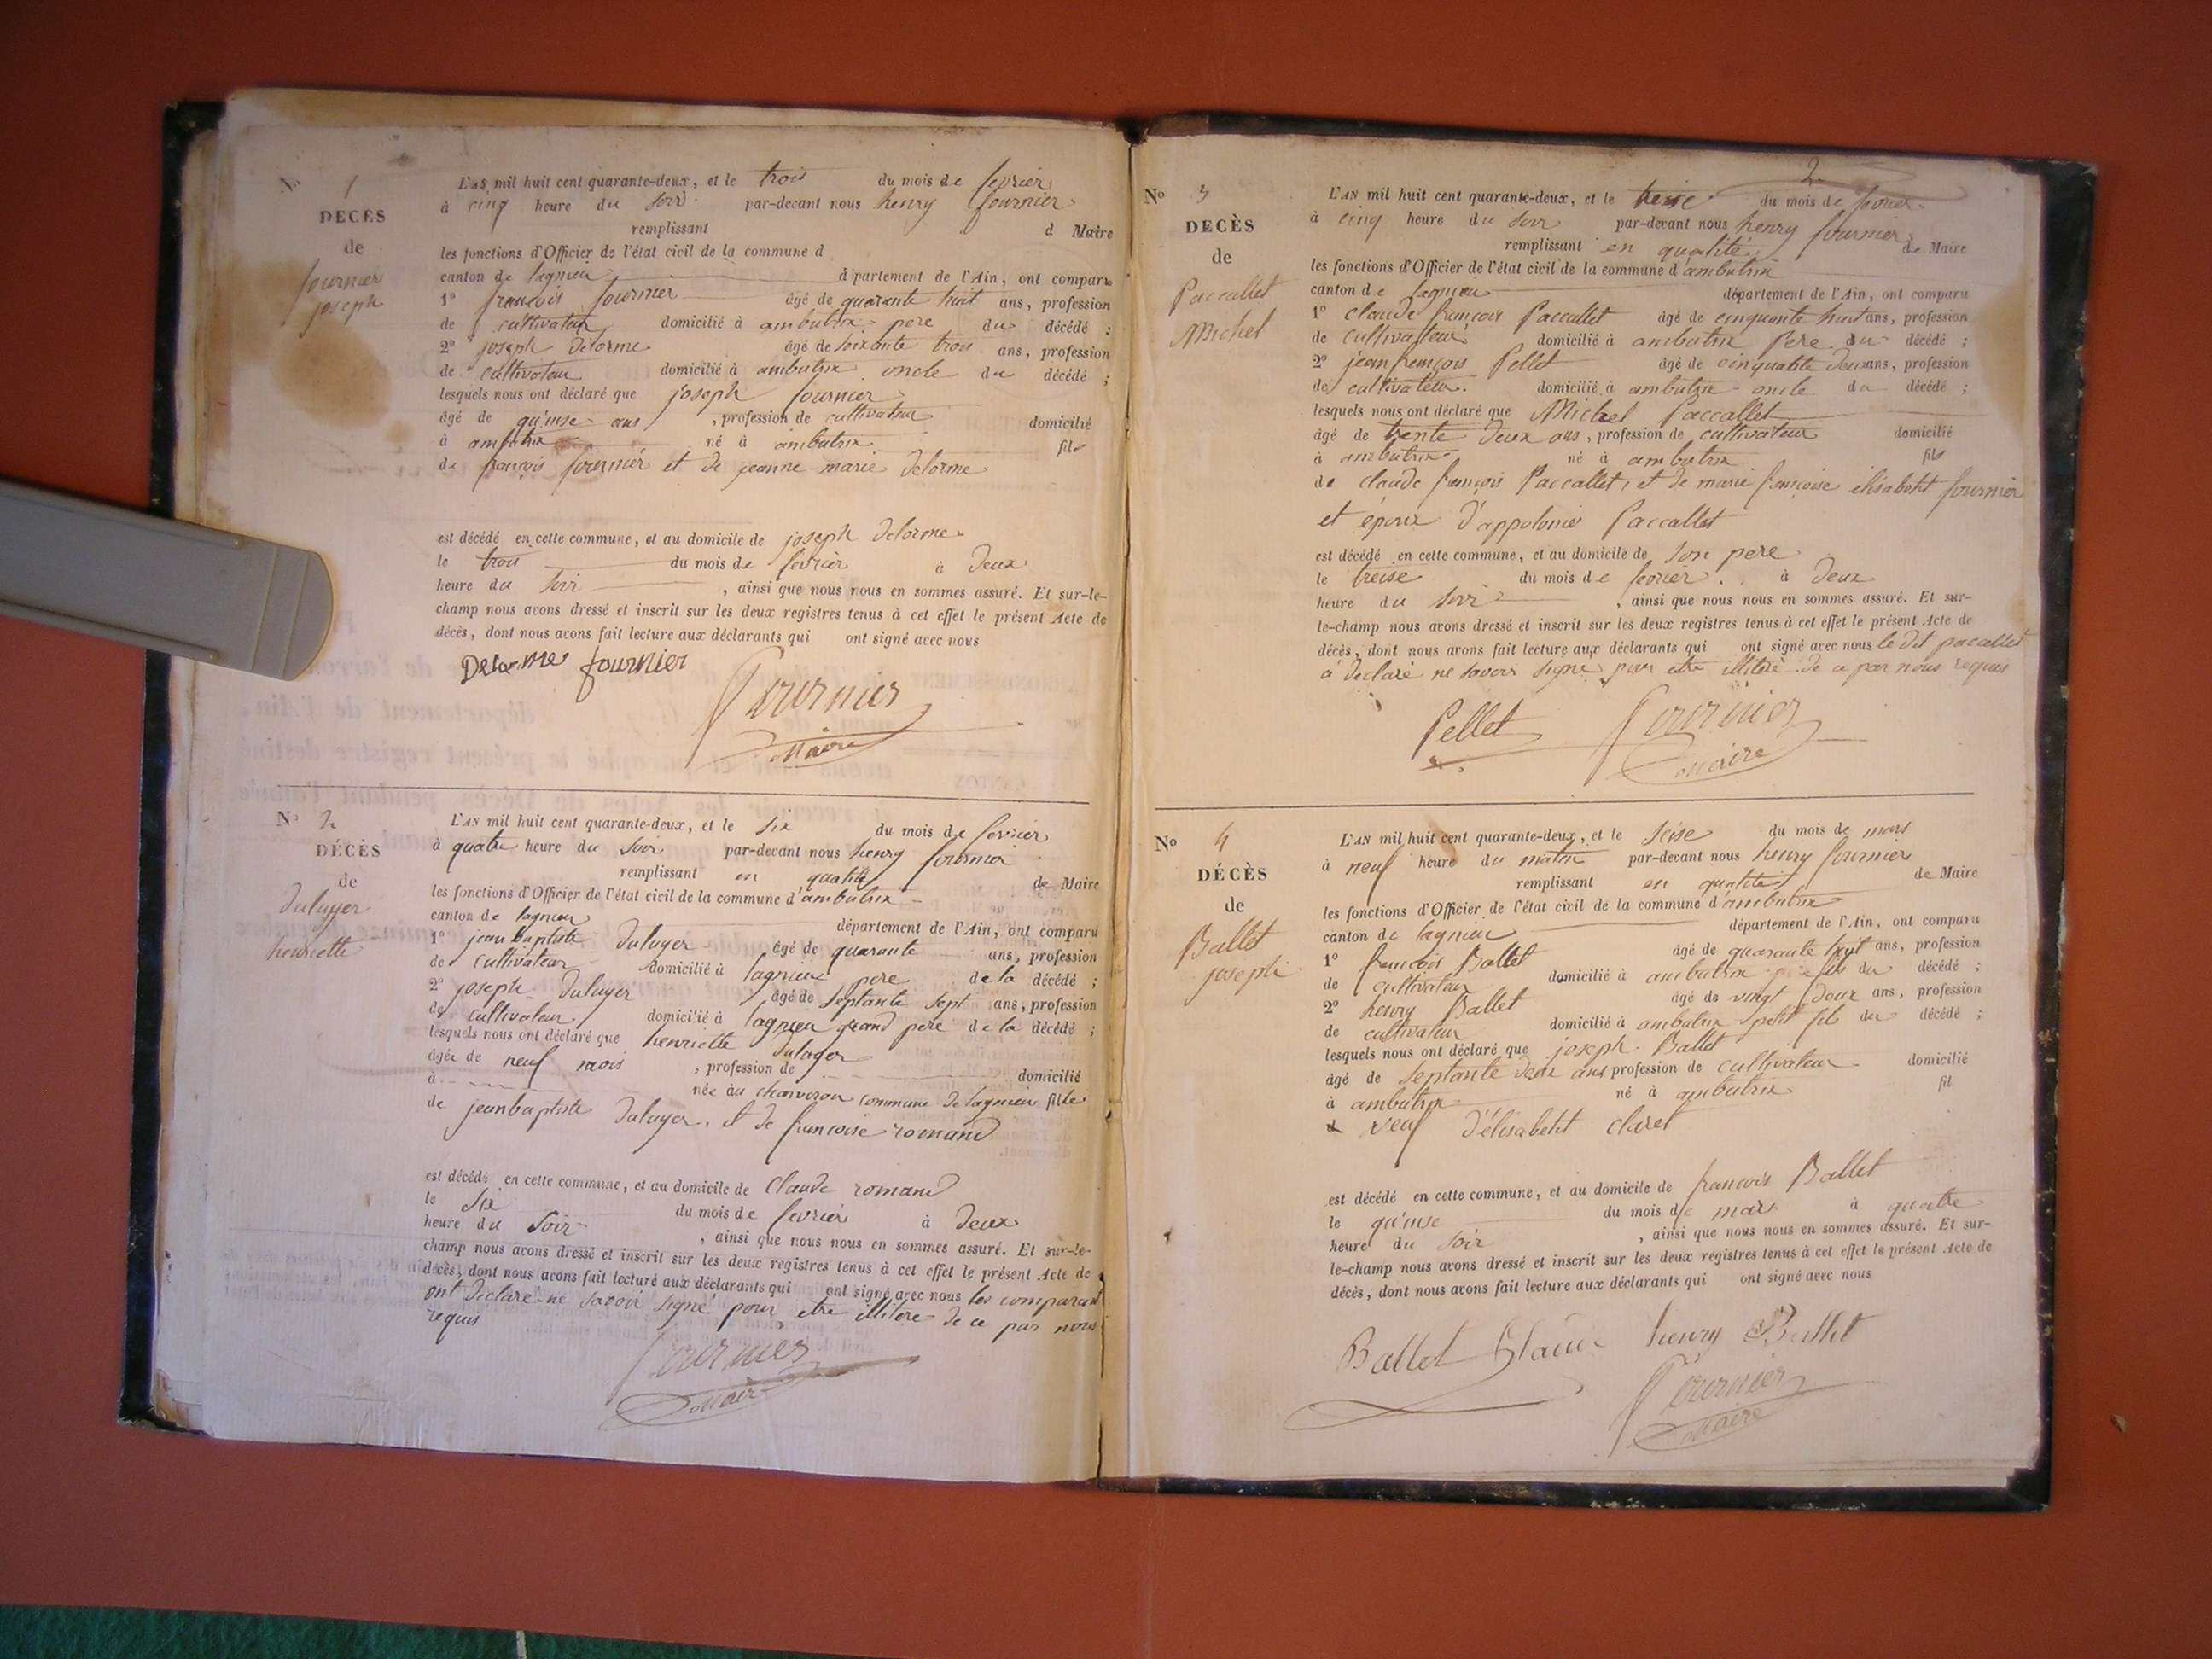 N° 1
DECÈS
de
fournier
joseph
L'AN mil huit cent quarante-deux, et le trois du mois de fevrier
à cinq heure du soir par-devant nous henry fournier
remplissant d Maire
les fonctions d'Officier de l'état civil de la commune d
canton de lagnieu département de l'Ain, ont comparu
1° françois fournier âgé de quarante huit ans, profession
de cultivateur domicilié à ambutrix pere du décédé ;
2° joseph delorme âgé de soixante trois ans, profession
de cultivateur domicilié à ambutrix oncle du décédé ;
lesquels nous ont déclaré que joseph fournier
âgé de quinse ans , profession de cultivateur domicilié
à ambutrix né à ambutrix fils
de françois fournier et de jeanne marie delorme
est décédé en cette commune, et au domicile de joseph delorme
le trois du mois de fevrier à deux
heure du soir , ainsi que nous nous en sommes assuré. Et sur-le-
champ nous avons dressé et inscrit sur les deux registres tenus à cet effet le présent Acte de
décès, dont nous avons fait lecture aux déclarants qui ont signé avec nous
Delorme fournier
Fournier
Maire
N° 2
DÉCÈS
de
Duluyer
henriette
L'AN mil huit cent quarante-deux, et le six du mois de fevrier
à quatre heure du soir par-devant nous henry fournier
remplissant en qualité de Maire
les fonctions d'Officier de l'état civil de la commune d'ambutrix
canton de lagnieu département de l'Ain, ont comparu
1° jean baptiste Duluyer âgé de quarante ans, profession
de cultivateur domicilié à lagnieu pere de la décédé ;
2° joseph Duluyer âgé de septante sept ans, profession
de cultivateur domicilié à lagnieu grand pere de la décédé ;
lesquels nous ont déclaré que henriette Duluyer
âgée de neuf mois , profession de domicilié
à née au charveron commune de lagnieu fille
de jeanbaptiste Duluyer et de francoise romand
est décédé en cette commune, et au domicile de Claude romand
le six du mois de fevrier à deux
heure du soir , ainsi que nous nous en sommes assuré. Et sur-le-
champ nous avons dressé et inscrit sur les deux registres tenus à cet effet le présent Acte de
décès, dont nous avons fait lecture aux déclarants qui ont signé avec nous les comparant
ont declaré ne savoir signé pour etre illitere de ce par nous
requis
Fournier
Maire
2
N° 3
DÉCÈS
de
Paccallet
Michel
L'AN mil huit cent quarante-deux, et le treise du mois de fevrier
à cinq heure du soir par-devant nous henry fournier
remplissant en qualité de Maire
les fonctions d'Officier de l'état civil de la commune d'ambutrix
canton de lagnieu département de l'Ain, ont comparu
1° claude françois Paccallet âgé de cinquante huit ans, profession
de cultivateur domicilié à ambutrix Pere du décédé ;
2° jean françois Pellet âgé de cinquante deux ans, profession
de cultivateur domicilié à ambutrix oncle du décédé ;
lesquels nous ont déclaré que Michel Paccallet
âgé de trente deux ans, profession de cultivateur domicilié
à ambutrix né à ambutrix fils
de claude françois Paccallet, et de marie françoise élisabeht fournier
et époux d'appolonie Paccallet
est décédé en cette commune, et au domicile de son pere
le treise du mois de fevrier à deux
heure du soir , ainsi que nous nous en sommes assuré. Et sur-
le-champ nous avons dressé et inscrit sur les deux registres tenus à cet effet le présent Acte de
décès, dont nous avons fait lecture aux déclarants qui ont signé avec nous le dit paccallet
a declaré ne savoir signe pour etre illiteré de ce par nous requis
Pellet Fournier
Maire
N° 4
DÉCÈS
de
Ballet
joseph
L'AN mil huit cent quarante-deux, et le seise du mois de mars
à neuf heure du matin par-devant nous henry fournier
remplissant en qualité de Maire
les fonctions d'Officier de l'état civil de la commune d'ambutrix
canton de lagnieu département de l'Ain, ont comparu
1° francois Ballet âgé de quarante huit ans, profession
de cultivateur domicilié à ambutrix fils du décédé ;
2° henry Ballet âgé de vingt deux ans, profession
de cultivateur domicilié à ambutrix petit fils du décédé ;
lesquels nous ont déclaré que joseph Ballet
âgé de septante deux ans profession de cultivateur domicilié
à ambutrix né à ambutrix fil
d veuf d'élisabeht claret
est décédé en cette commune, et au domicile de francois Ballet
le quinse du mois de mars à quatre
heure du soir , ainsi que nous nous en sommes assuré. Et sur-
le-champ nous avons dressé et inscrit sur les deux registres tenus à cet effet le présent Acte de
décès, dont nous avons fait lecture aux déclarants qui ont signé avec nous
Ballet henry Ballet
Fournier
Maire